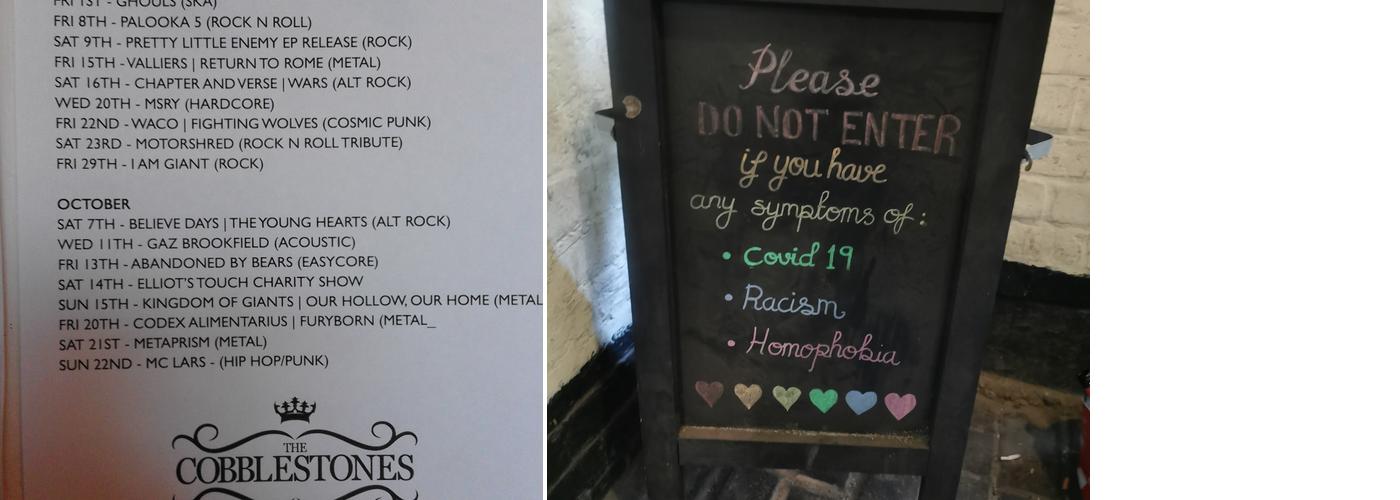 FRI 1ST - GHOULS (SKA)
FRI 8TH - PALOOKA 5 (ROCK N ROLL)
SAT 9TH - PRETTY LITTLE ENEMY EP RELEASE (ROCK)
FRI 15TH - VALLIERS | RETURN TO ROME (METAL)
SAT 16TH - CHAPTER AND VERSE | WARS (ALT ROCK)
WED 20TH - MSRY (HARDCORE)
FRI 22ND - WACO | FIGHTING WOLVES (COSMIC PUNK)
SAT 23RD - MOTORSHRED (ROCK N ROLL TRIBUTE)
FRI 29TH - I AM GIANT (ROCK)
OCTOBER
SAT 7TH - BELIEVE DAYS | THE YOUNG HEARTS (ALT ROCK)
WED 11TH - GAZ BROOKFIELD (ACOUSTIC)
FRI 13TH - ABANDONED BY BEARS (EASYCORE)
SAT 14TH - ELLIOT'S TOUCH CHARITY SHOW
SUN 15TH - KINGDOM OF GIANTS | OUR HOLLOW, OUR HOME (METAL
FRI 20TH - CODEX ALIMENTARIUS | FURYBORN (METAL_
SAT 21ST - METAPRISM (METAL)
SUN 22ND - MC LARS - (HIP HOP/PUNK)
THE
COBBLESTONES
Please
DO NOT ENTER
if you have
any symptoms of:
• Covid 19
• Racism
• Homophobia